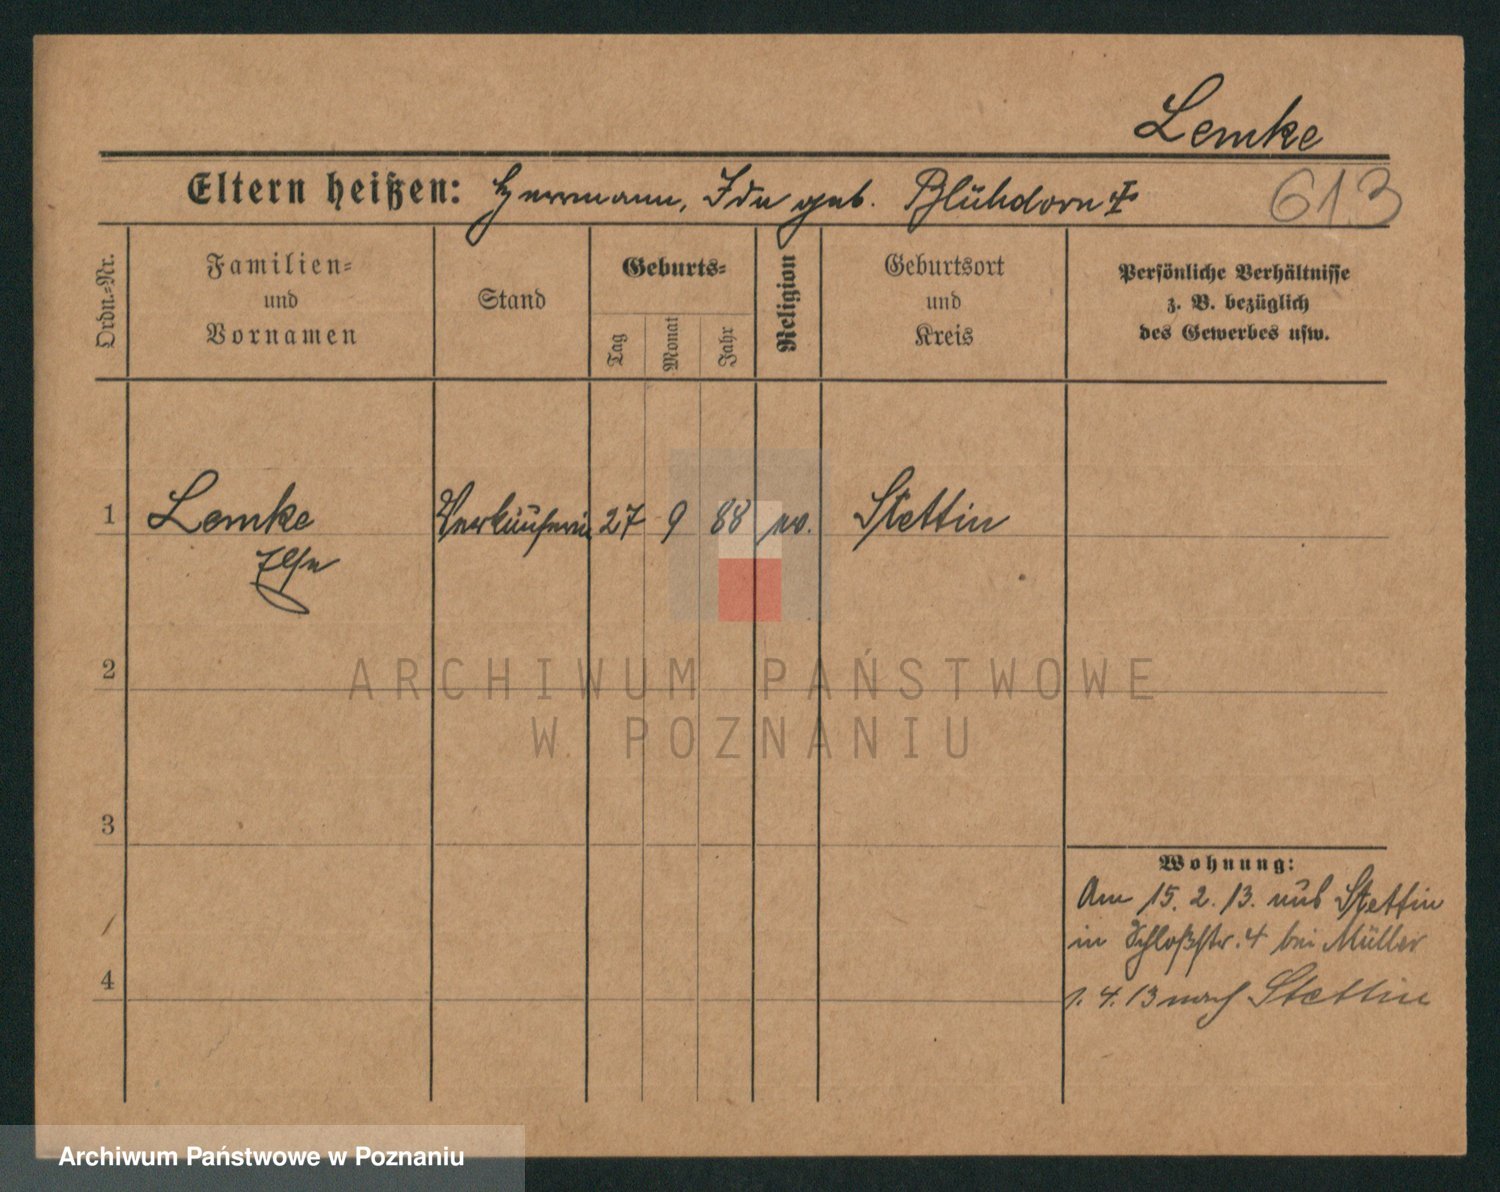 Lemke
Eltern heißen: Herrmann, Ida geb. Blühdorn
613
Ordn.-Nr.
Familien-
und
Vornamen
Stand
Geburts-
Tag
Monat
Jahr
Religion
Geburtsort
und
Kreis
Persönliche Verhältnisse
z. B. bezüglich
des Gewerbes usw.
1 Lemke Verkäuferin 27 9 88 ev. Stettin
Else
2
ARCHIWUM PAŃSTWOWE
W POZNANIU
3
Wohnung:
Am 15. 2. 13. aus Stettin
in Schloßstr. 4 bei Müller
4
1. 4. 13 nach Stettin
Archiwum Państwowe w Poznaniu